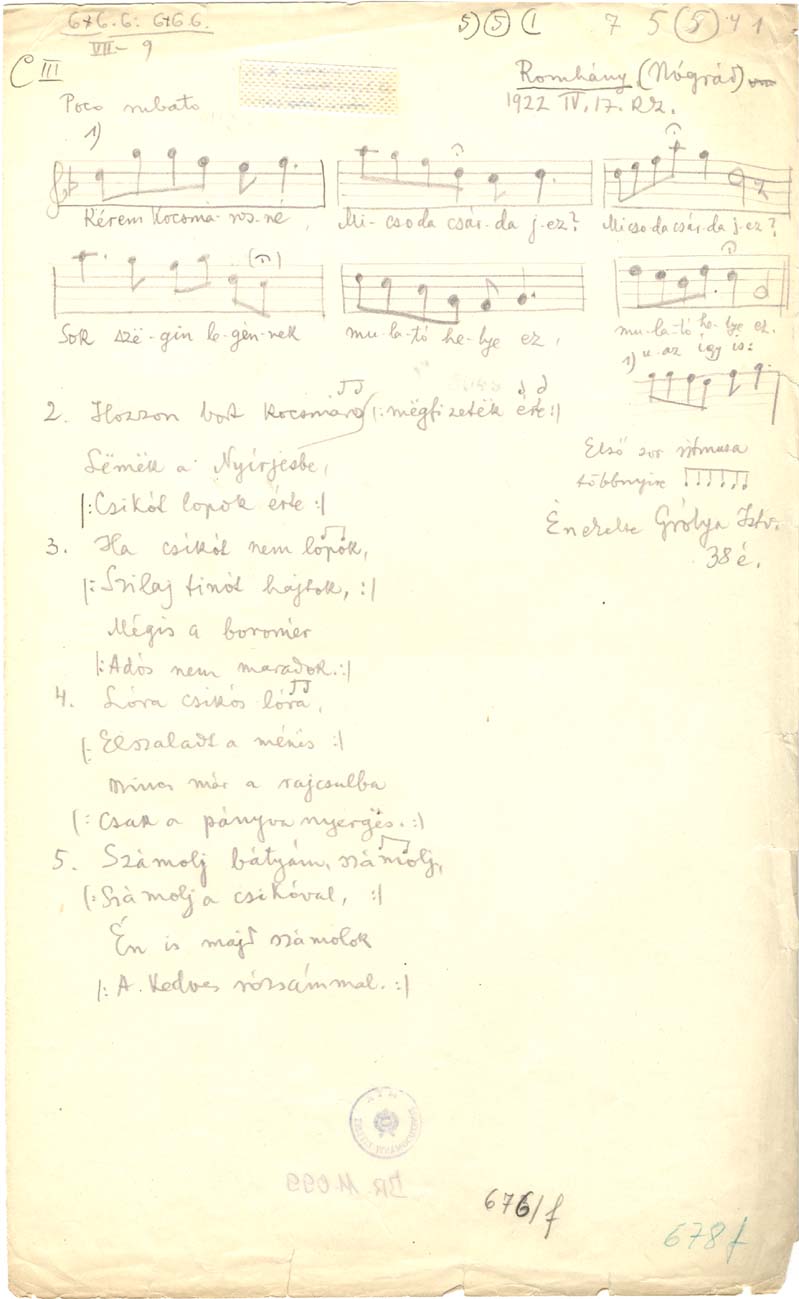 6+6.6: 6+6.6.
VII – 9
5) (5) (1
7 5 (5) 4 1
C III
Romhány (Nógrád)
1922 IV. 17.
Poco rubato
1)
Kérem Kocsmá-ros-né,
Mi-csoda csár-da j-ez?
Micsoda csár-da j-ez?
Sok szë-gin le-gén-nek
mu-la-tó he-lye ez,
mu-la-tó he-lye ez.
1) u. az így is:
2. Hozzon bort kocsmáro |: mëgfizeték érte :|
Lëmëk a Nyírjesbe,
|: Csikót lopok érte :|
Első sor ritmusa
többnyire
Énekelte Gólya Istv.
38 é.
3. Ha csikót nem lopok,
|: Szilaj tinót hajtok, :|
Mégis a boromér
|: Adós nem maradok. :|
4. Lóra csikós lóra,
|: Elszaladt a ménës :|
Nincs már a rajcsulba
|: Csak a pányva nyergës. :|
5. Számolj bátyám, számolj,
|: Számolj a csikóval, :|
Én is majd számolok
|: A kedves rózsámmal. :|
BR 11099
676/f
678 f